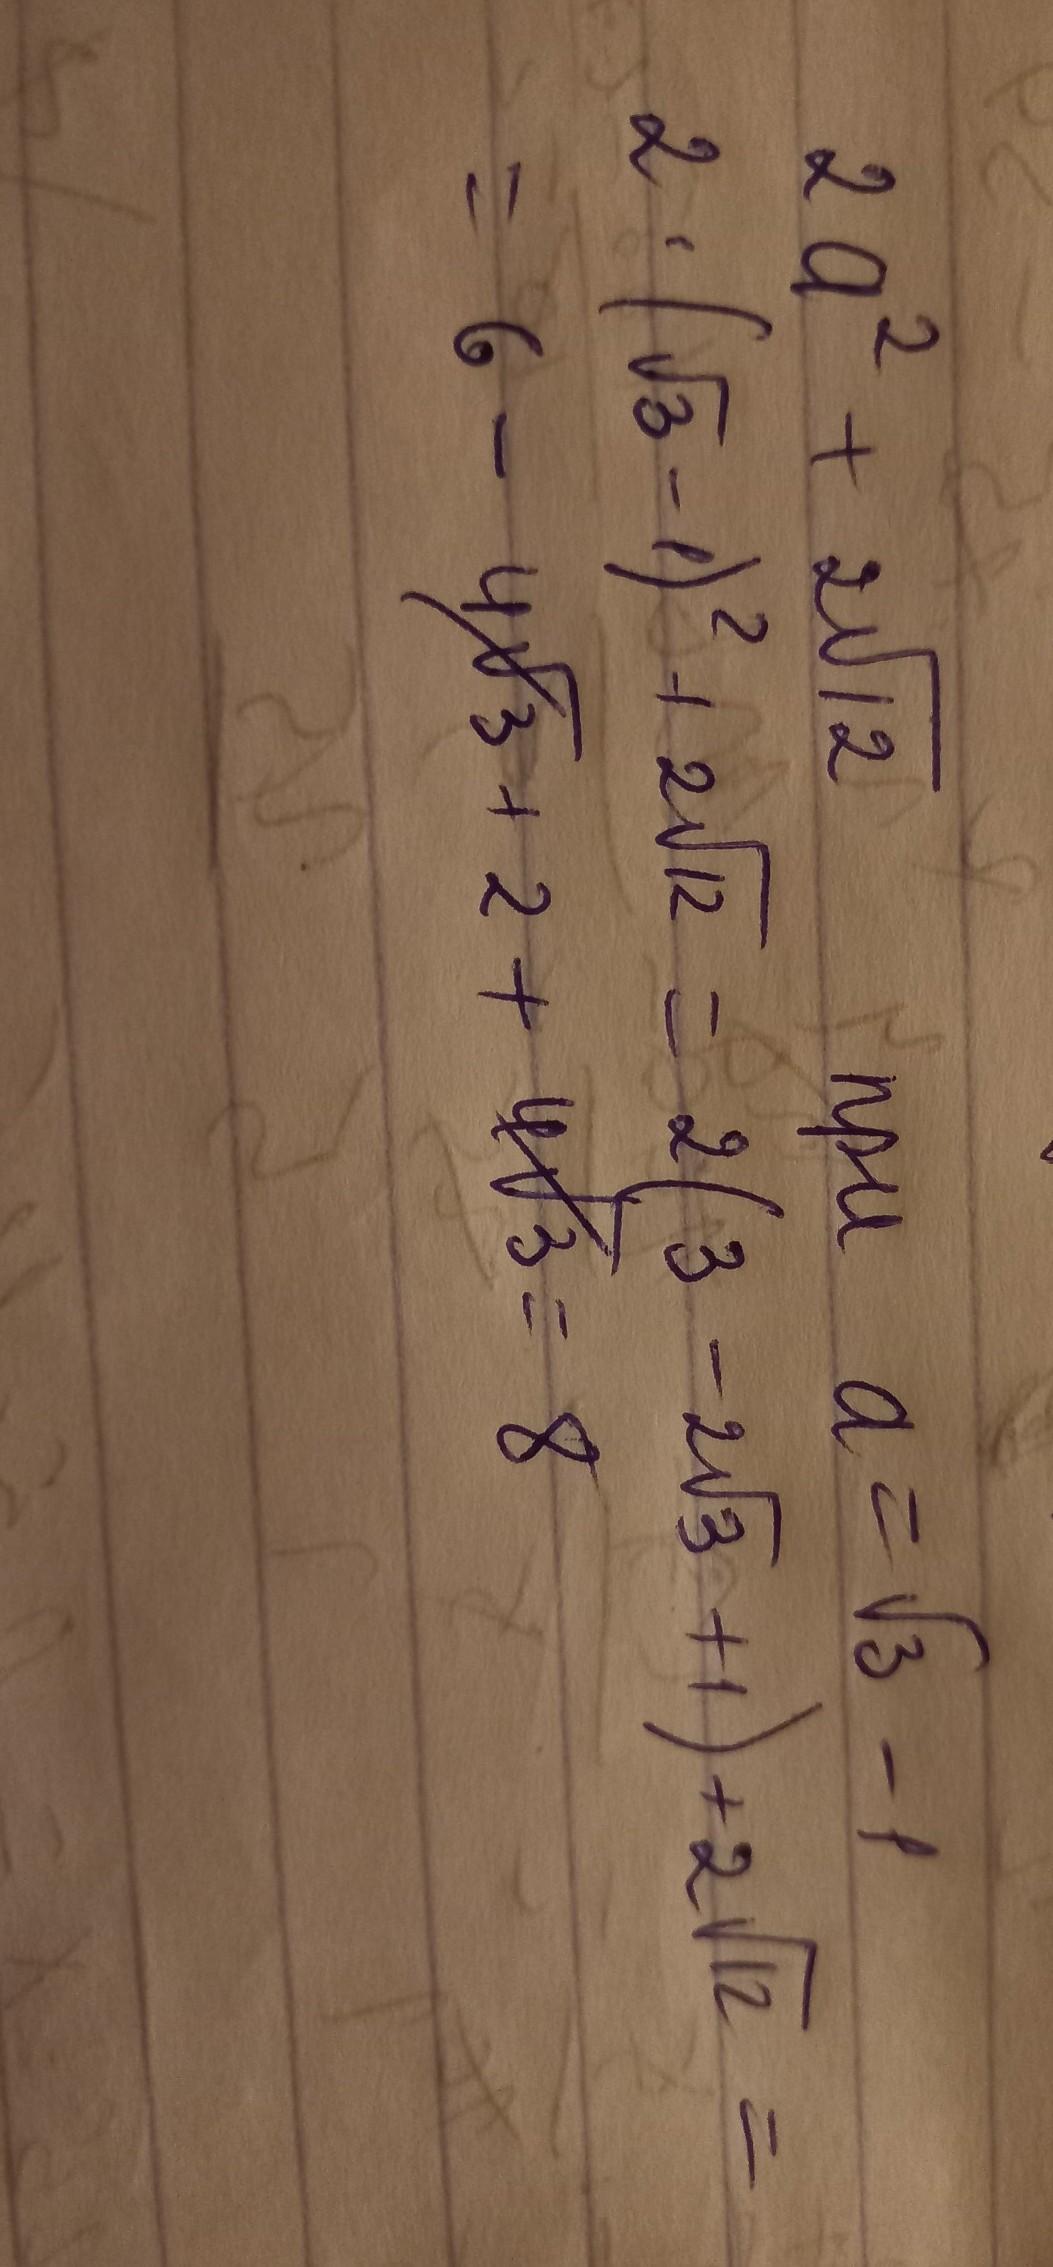 2a² + 2√12 при a = √3 - 1
2 · (√3 - 1)² + 2√12 = 2(3 - 2√3 + 1) + 2√12 =
= 6 - 4√3 + 2 + 4√3 = 8